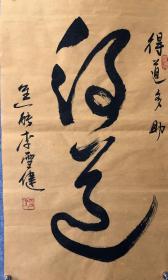 得道多助
得道
李雪健